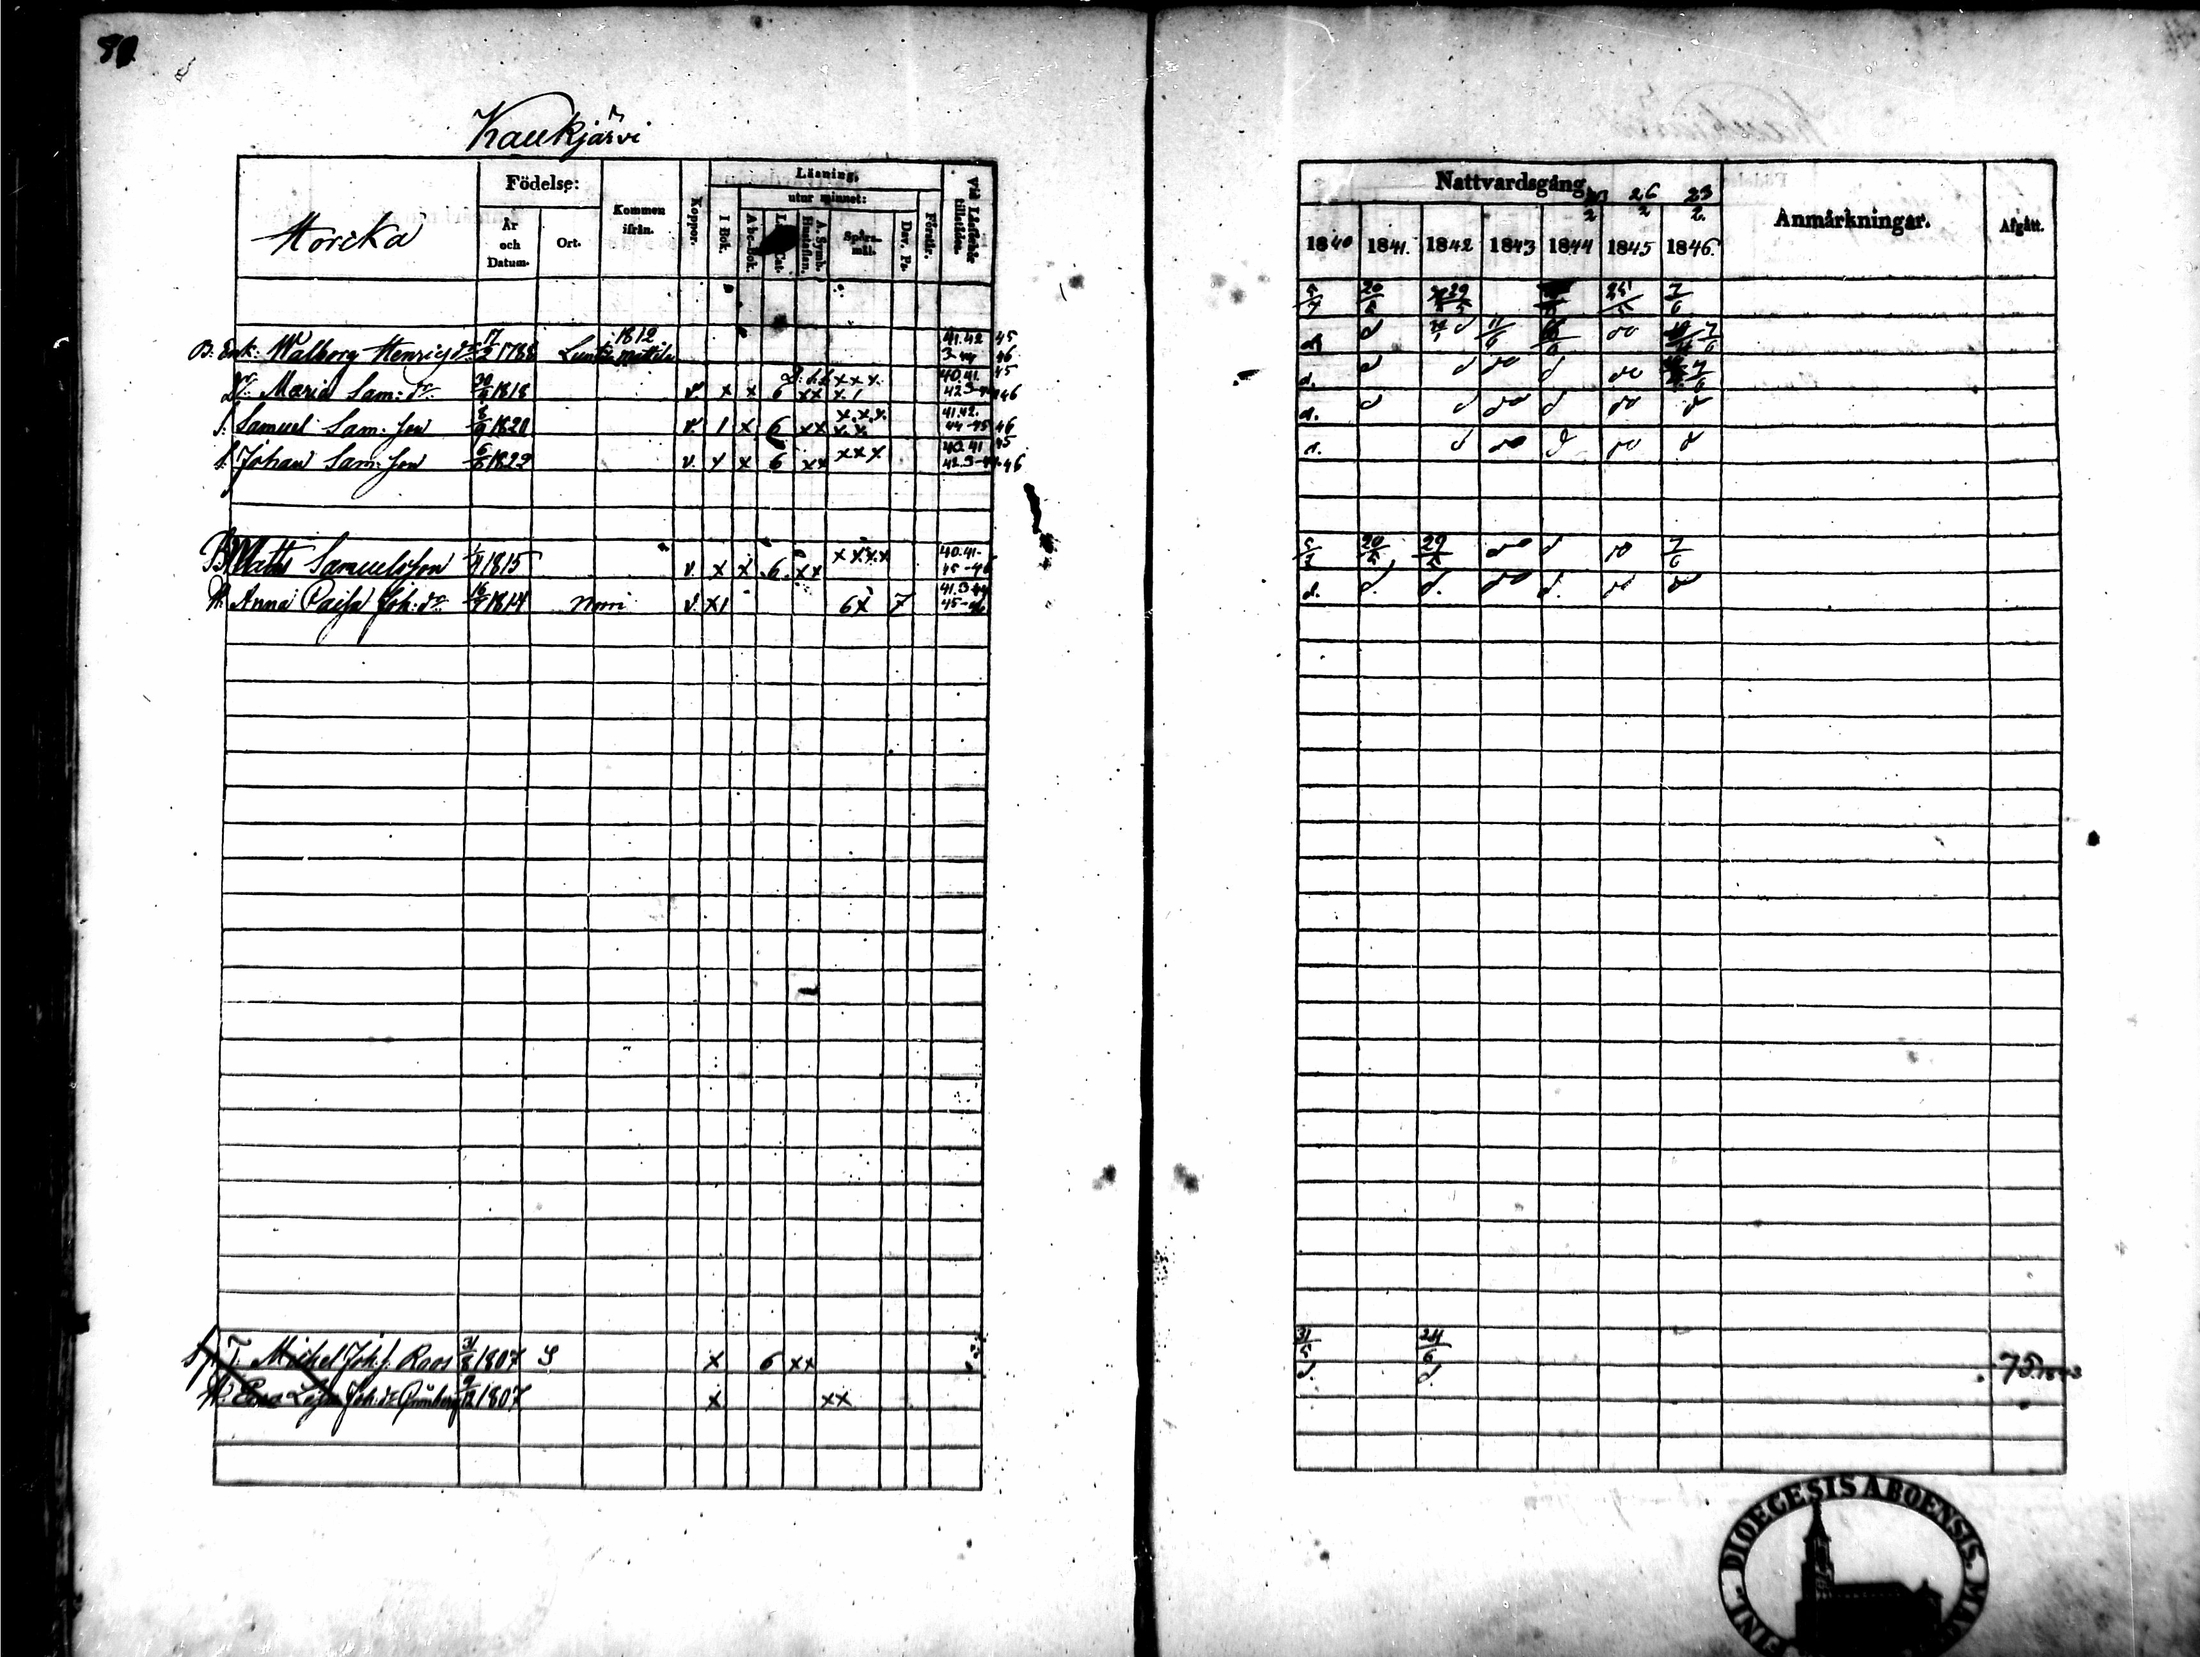 Kaukjärvi
Horcka
Födelse:
År och Datum.
Ort.
Kommen ifrån.
Koppor.
Läsning,
I Bok.
utur minnet:
A be-Bok.
A. Symb.
Hustaflan.
Spörs-mål.
Dav. Ps.
Förstår.
Vid Läseförhör tillstädes.
B. Enk. Walborg Henrics dr 17/2 1788 1812 41.42 45 46
Dr. Maria Sam: dr 30/6 1818 v x x 6 xx x x x. x 1 40.41. 45 46
S. Samuel Sam. son 8/9 1820 v 1 x 6 xx x.x.x. x.x. 41.42. 44-45 46
S. Johan Sam. son 6/8 1822 v. x x 6 xx xxx 40.41 45 46
B Matts Samuelsson 1/4 1815 v. x x 6. xx xxxx 40.41- 45-46
H. Anna Caisa Joh: dr 16/7 1814 v. x1 6x 7 45-46
T. Michel Joh. s. Roos 31/8 1807 S x 6 xx
H. Lisa Joh: dr 9/12 1807 x xx
Nattvardsgång
26/2 23/2
1840 1841. 1842 1843 1844 1845 1846.
Anmärkningar.
Afgått.
5/7 20/5 29/5 25/5 7/6
d. d d 11/6 do 7/6
d. d d do d do 7/6
d. d d do d do d
d. d do d do d
5/7 20/5 29/5 do d do 7/6
d. d. d. do d. do d
31/5 24/6
d. d. 75. 1843
FINL. DIOECESIS ABOENSIS. MAG